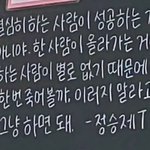 열심히 하는 사람이 성공하는 게
아니야. 한 사람이 올라가는 거
하는 사람이 별로 없기 때문에
한번 죽어볼까, 이러지 말라고
그냥 하면 돼. -정승제T